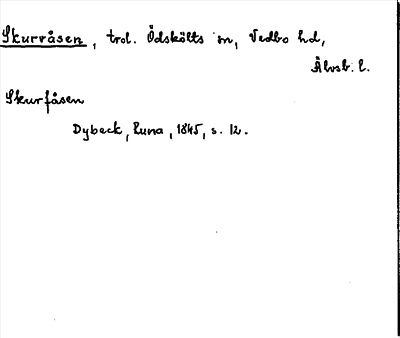 Skurråsen, trol. Ödskölts sn, Vedbo hd,
Älvsb. l.
Skurfåsen
Dybeck, Runa, 1845, s. 12.